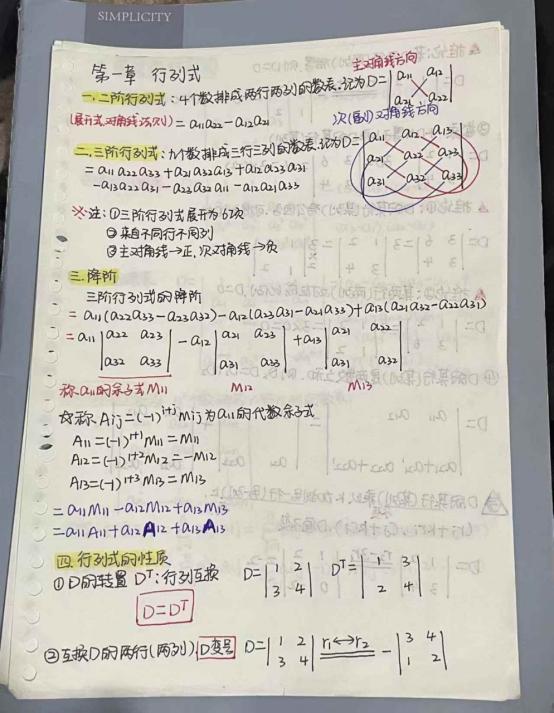 SIMPLICITY
第一章 行列式
主对角线方向
一.二阶行列式：4个数排成两行两列的数表,记为D=|a11 a12
a21 a22|
(展开式:对角线法则) = a11a22-a12a21
次(副)对角线方向
二.三阶行列式：九个数排成三行三列的数表,记为D=|a11 a12 a13
a21 a22 a23
a31 a32 a33|
= a11a22a33+a21a32a13+a12a23a31
-a13a22a31-a23a32a11-a12a21a33
※注：①三阶行列式展开为6项
②来自不同行不同列
③主对角线→正,次对角线→负
三.降阶
三阶行列式的降阶
= a11(a22a33-a23a32)-a12(a23a31-a21a33)+a13(a21a32-a22a31)
= a11|a22 a23
a32 a33| -a12|a21 a23
a31 a33| +a13|a21 a22
a31 a32|
称a11的余子式M11 M12 M13
又称 Aij=(-1)^i+j Mij为a11的代数余子式
A11=(-1)^1+1 M11=M11
A12=(-1)^1+2 M12=-M12
A13=(-1)^1+3 M13=M13
=a11M11-a12M12+a13M13
=a11A11+a12A12+a13A13
四.行列式的性质
①D的转置 D^T:行列互换 D=|1 2
3 4| D^T=|1 3
2 4|
D=D^T
②互换D的两行(两列),D变号 D=|1 2
3 4| r1↔r2 -|3 4
1 2|